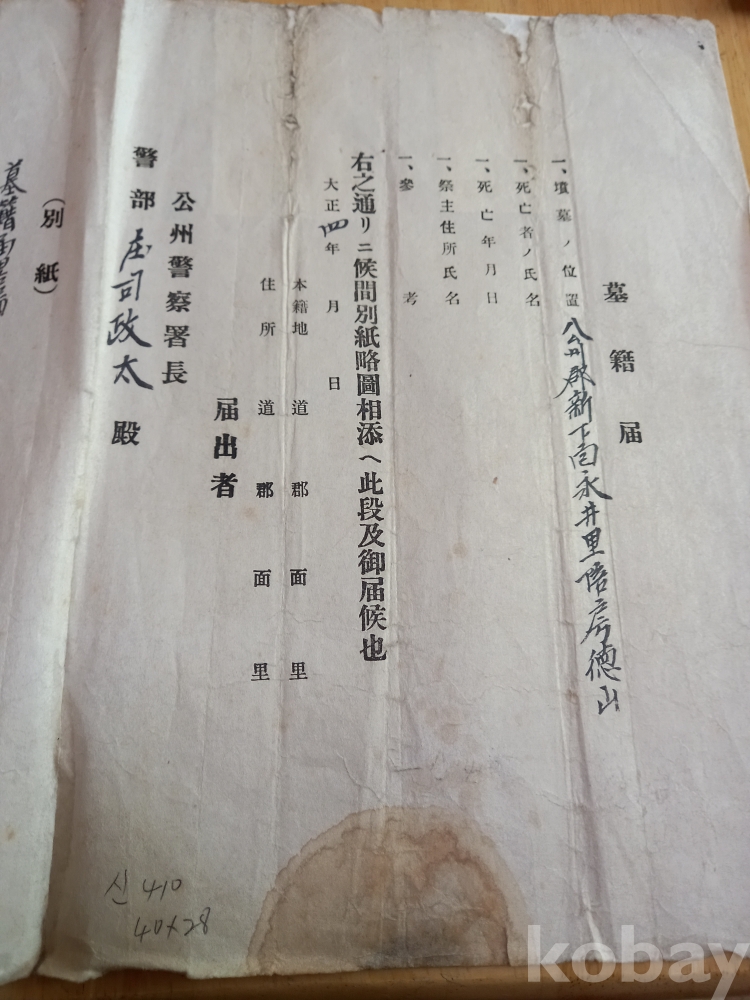 墓籍届
一、墳墓ノ位置 公州郡新下面永井里悟房德山
一、死亡者ノ氏名
一、死亡年月日
一、祭主住所氏名
一、參考
右之通リニ候間別紙略圖相添ヘ此段及御届候也
大正四年 月 日
本籍地 道 郡 面 里
住所 道 郡 面 里
届出者
公州警察署長
警部 庄司政太 殿
(別紙)
墓籍届
신 410
40×28
kobay